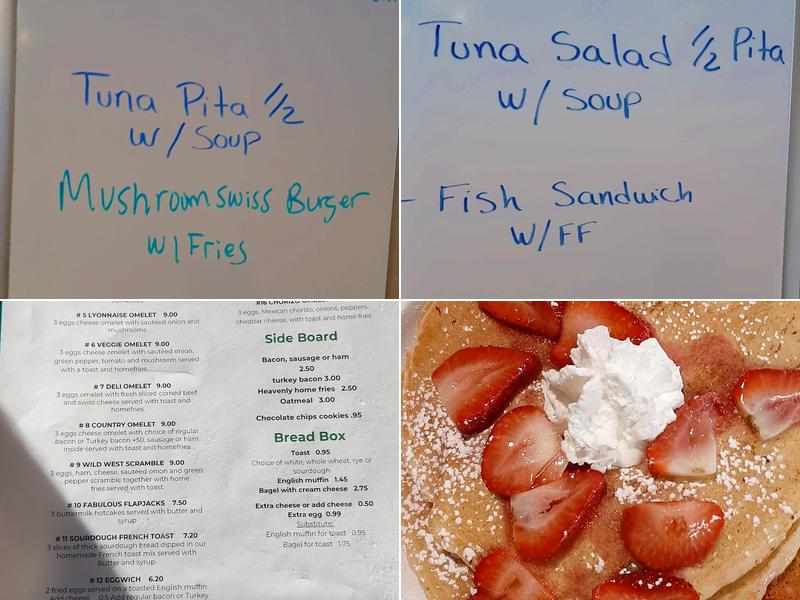 Tuna Pita 1/2
W/Soup
Mushroom Swiss Burger
W/Fries
Tuna Salad 1/2 Pita
W/Soup
- Fish Sandwich
W/FF
homefries
# 5 LYONNAISE OMELET 9.00
3 eggs cheese omelet with sautéed onion and
mushrooms
# 6 VEGGIE OMELET 9.00
3 eggs cheese omelet with sautéed onion,
green pepper, tomato and mushroom served
with a toast and homefries
# 7 DELI OMELET 9.00
3 eggs omelet with fresh sliced corned beef
and swiss cheese served with toast and
homefries
# 8 COUNTRY OMELET 9.00
3 eggs cheese omelet with choice of regular
bacon or Turkey bacon +50, sausage or ham
inside served with toast and homefries
# 9 WILD WEST SCRAMBLE 9.00
3 eggs, ham, cheese, sautéed onion and green
pepper scramble together with home
fries served with toast
# 10 FABULOUS FLAPJACKS 7.50
3 buttermilk hotcakes served with butter and
syrup
# 11 SOURDOUGH FRENCH TOAST 7.20
3 slices of thick sourdough bread dipped in our
homemade French toast mix served with
butter and syrup
# 12 EGGWICH 6.20
2 fried eggs served on a toasted English muffin
Add cheese 0.5 Add regular bacon or Turkey
#16 CHORIZO OMELET
3 eggs, Mexican chorizo, onions, peppers,
cheddar cheese, with toast and home fries
Side Board
Bacon, sausage or ham
2.50
turkey bacon 3.00
Heavenly home fries 2.50
Oatmeal 3.00
Chocolate chips cookies .95
Bread Box
Toast 0.95
Choice of white, whole wheat, rye or
sourdough
English muffin 1.45
Bagel with cream cheese 2.75
Extra cheese or add cheese 0.50
Extra egg 0.99
Substitute:
English muffin for toast 0.95
Bagel for toast 1.75